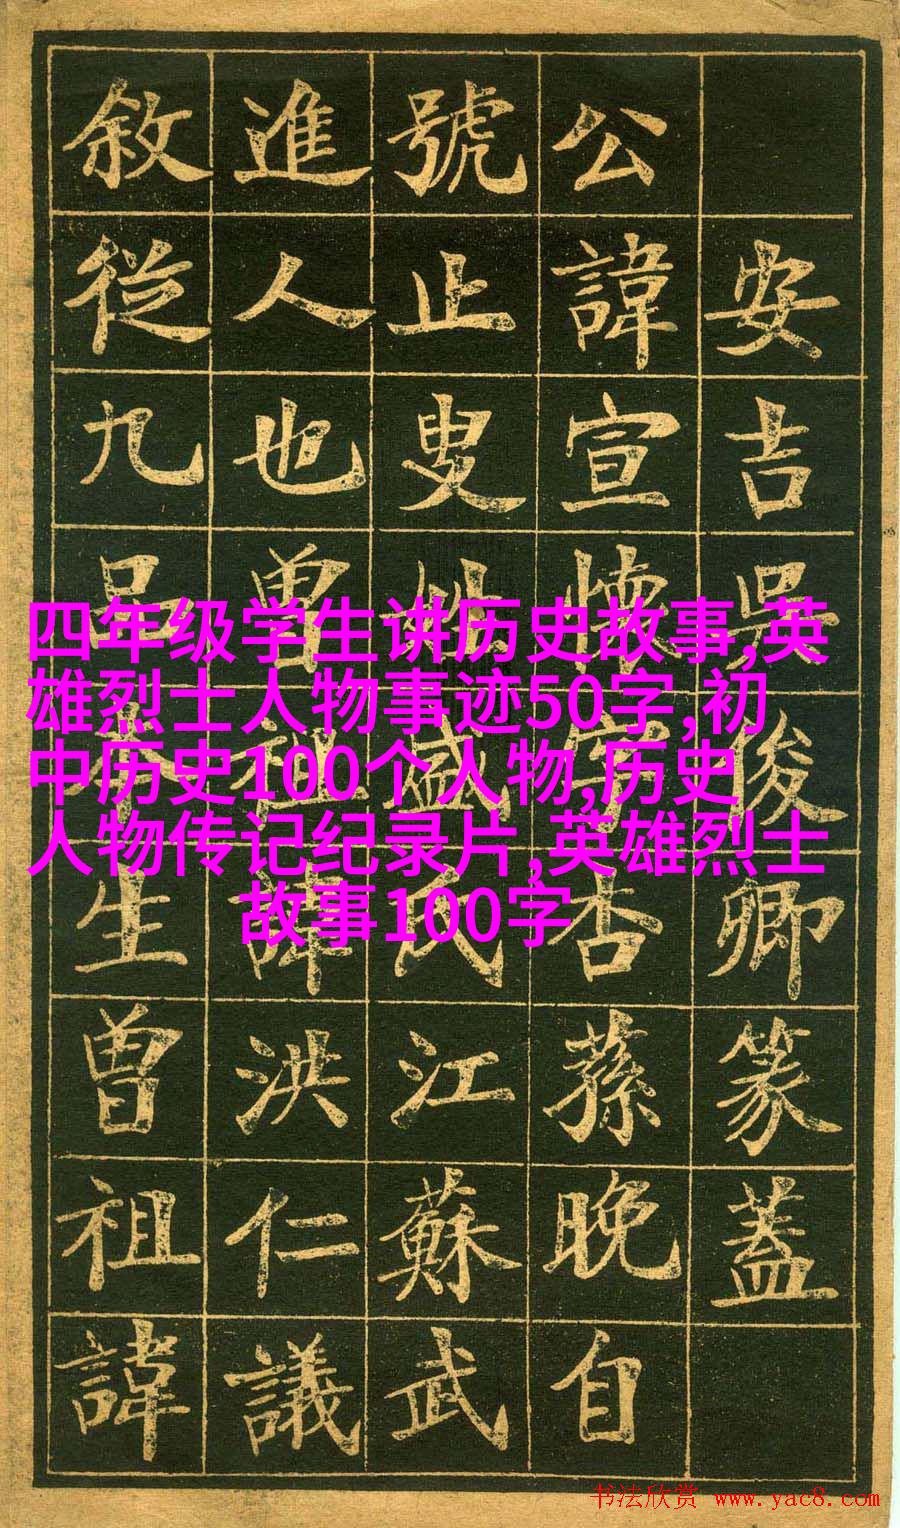 安吉吳俊卿篆蓋
公諱宣懷字杏蓀晚自
號止叟姓盛氏江蘇武
進人也曾祖諱洪仁議
敘從九品本生曾祖諱
四年级学生讲历史故事,英
雄烈士人物事迹50字,初
中历史100个人物,历史
人物传记纪录片,英雄烈士
故事100字
书法欣赏 www.yac8.com